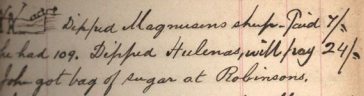 Dipped Magnusens sheep. Paid 7/-
he had 109. Dipped Hulenas, will pay 24/-
John got bag of sugar at Robinsons.